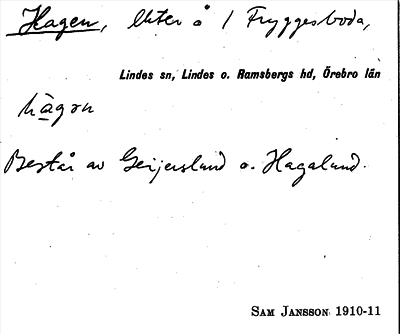 Hagen, Uteră 1 Fryggesboda,
Lindes sn, Lindes o. Ramsbergs hd, Örebro län
hāgɔn
Består av Geijerslund o. Hagalund.
SAM JANSSON 1910-11